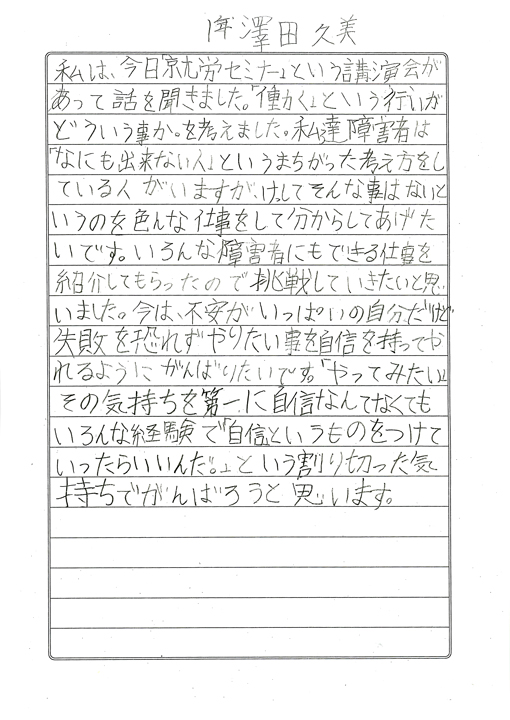 1年 澤田久美
私は、今日「京丸労セミナー」という講演会が
あって話を聞きました。「働く」という行いが
どういう事か。を考えました。私達障害者は
「なにも出来ない人」というまちがった考え方をし
ている人がいますが、けっしてそんな事はないと
いうのを色んな仕事をして分からしてあげた
いです。いろんな障害者にもできる仕事を
紹介してもらったので挑戦していきたいと思
いました。今は、不安がいっぱいの自分だけど
失敗を恐れずやりたい事を自信を持ってや
れるようにがんばりたいです。「やってみたい」
その気持ちを第一に自信なんてなくても
いろんな経験で「自信」というものをつけて
いったらいいんだ。」という割り切った気
持ちでがんばろうと思います。